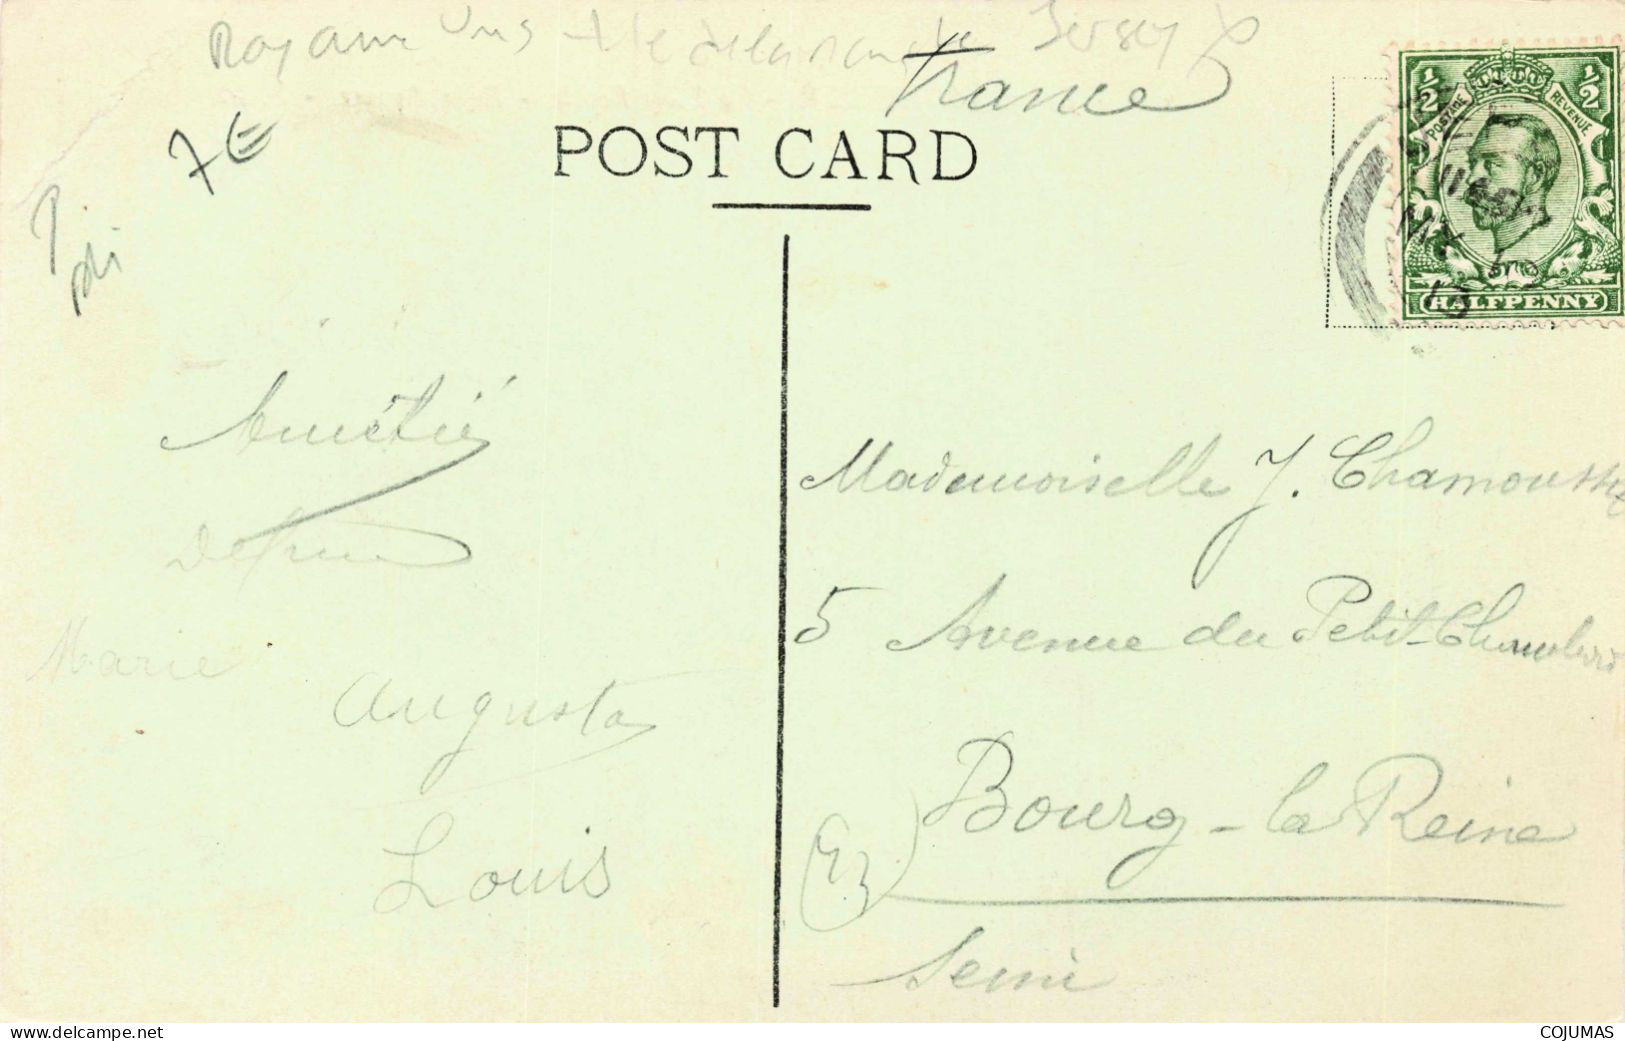 Royaume Uni - Ile de la manche Jersey
France
7€
POST CARD
1/2 1/2
POSTAGE REVENUE
HALFPENNY
Amitié
Marie
Augusta
Louis
Mademoiselle J. Chamousset
5 Avenue du Petit-Chambord
Bourg-la-Reine
Seine
www.delcampe.net
COJUMAS